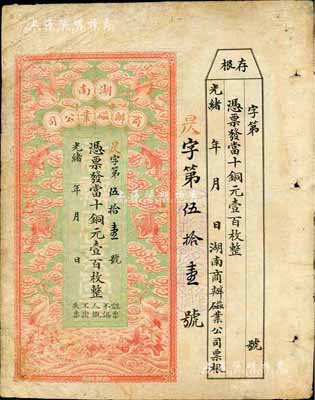 存根
字第 號
憑票發當十銅元壹百枚整
光緒 年 月 日湖南商辦磁業公司票根
字第伍拾壹號
湖南
商辦磁業公司
字第伍拾壹號
憑票發當十銅元壹百枚整
光緒 年 月 日
認票
不認
人
不
失票